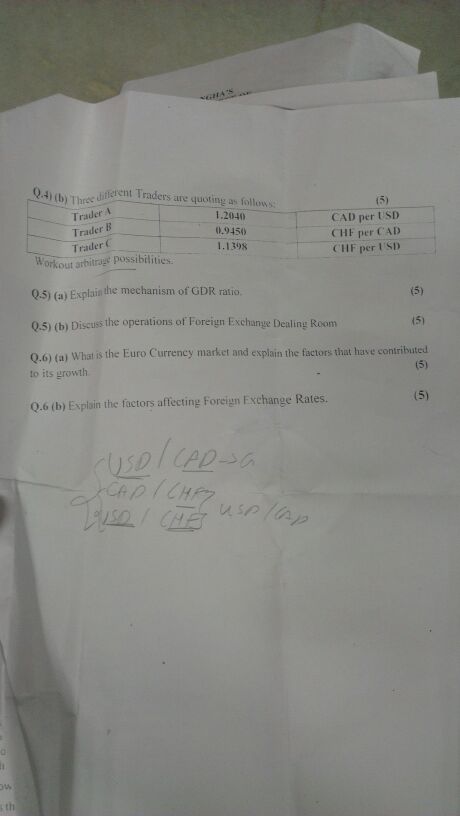 NGHA'S
Q.4) (b) Three different Traders are quoting as follows: (5)
Trader A 1.2040 CAD per USD
Trader B 0.9450 CHF per CAD
Trader C 1.1398 CHF per USD
Workout arbitrage possibilities.
Q.5) (a) Explain the mechanism of GDR ratio. (5)
Q.5) (b) Discuss the operations of Foreign Exchange Dealing Room (5)
Q.6) (a) What is the Euro Currency market and explain the factors that have contributed
to its growth. (5)
Q.6 (b) Explain the factors affecting Foreign Exchange Rates. (5)
USD / CAD
CAD / CHF
USD / CHF USD / CAD